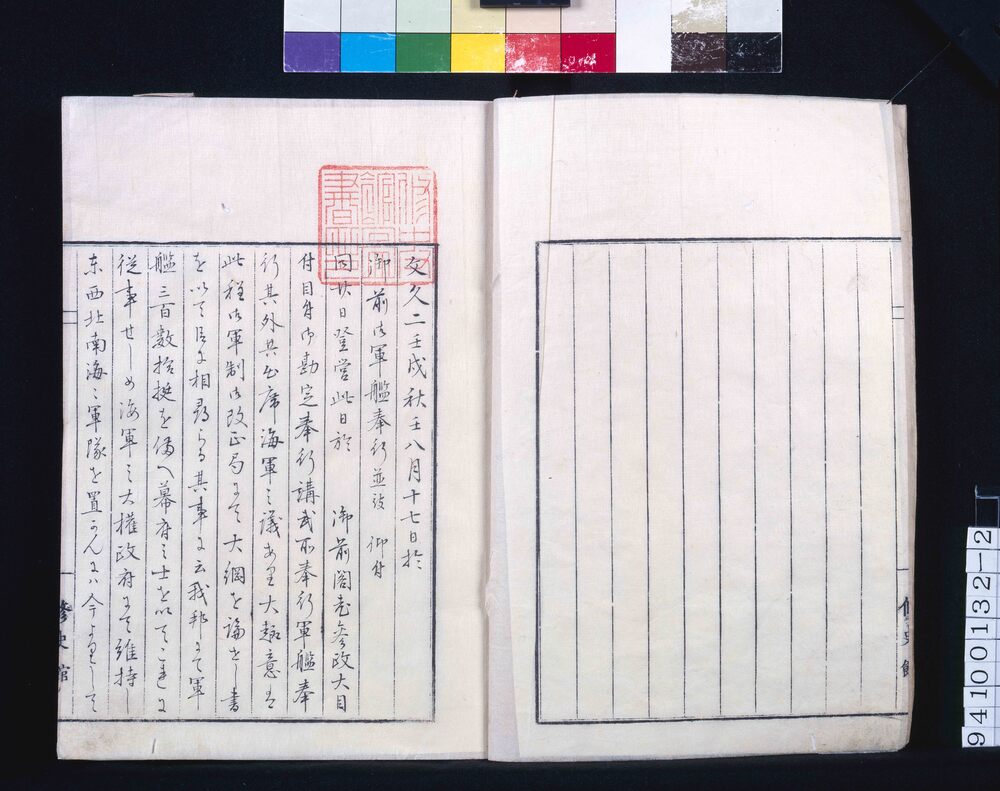 文久二壬戌秋壬八月十七日於
御前御軍艦奉行並被 御付
同廿日登営此日於 御前閣老参政大目
付目付御勘定奉行講武所奉行軍艦奉
行其外共出席海軍之議あり大趣意は
此程御軍制御改正局にて大綱を論せし書
を以て臣に相尋らる其事に云我邦にて軍
艦三百数拾挺を備へ幕府之士を以てこれに
従事せしめ海軍之大権政府にて維持し
東西北南海之軍隊を置かんには今よりして
修史館
修史館
94100132-2